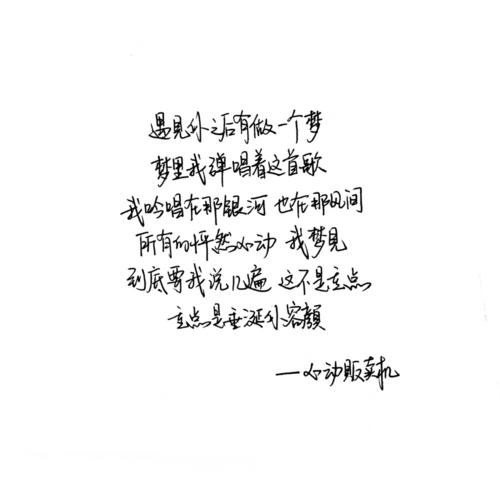 遇見你之后有做一个梦
梦里我弹唱着这首歌
我吟唱在那银河 也在那见间
所有的怦然心动 我梦見
到底要我说几遍 这不是重点
重点是垂涎你容顔
—心动販卖机